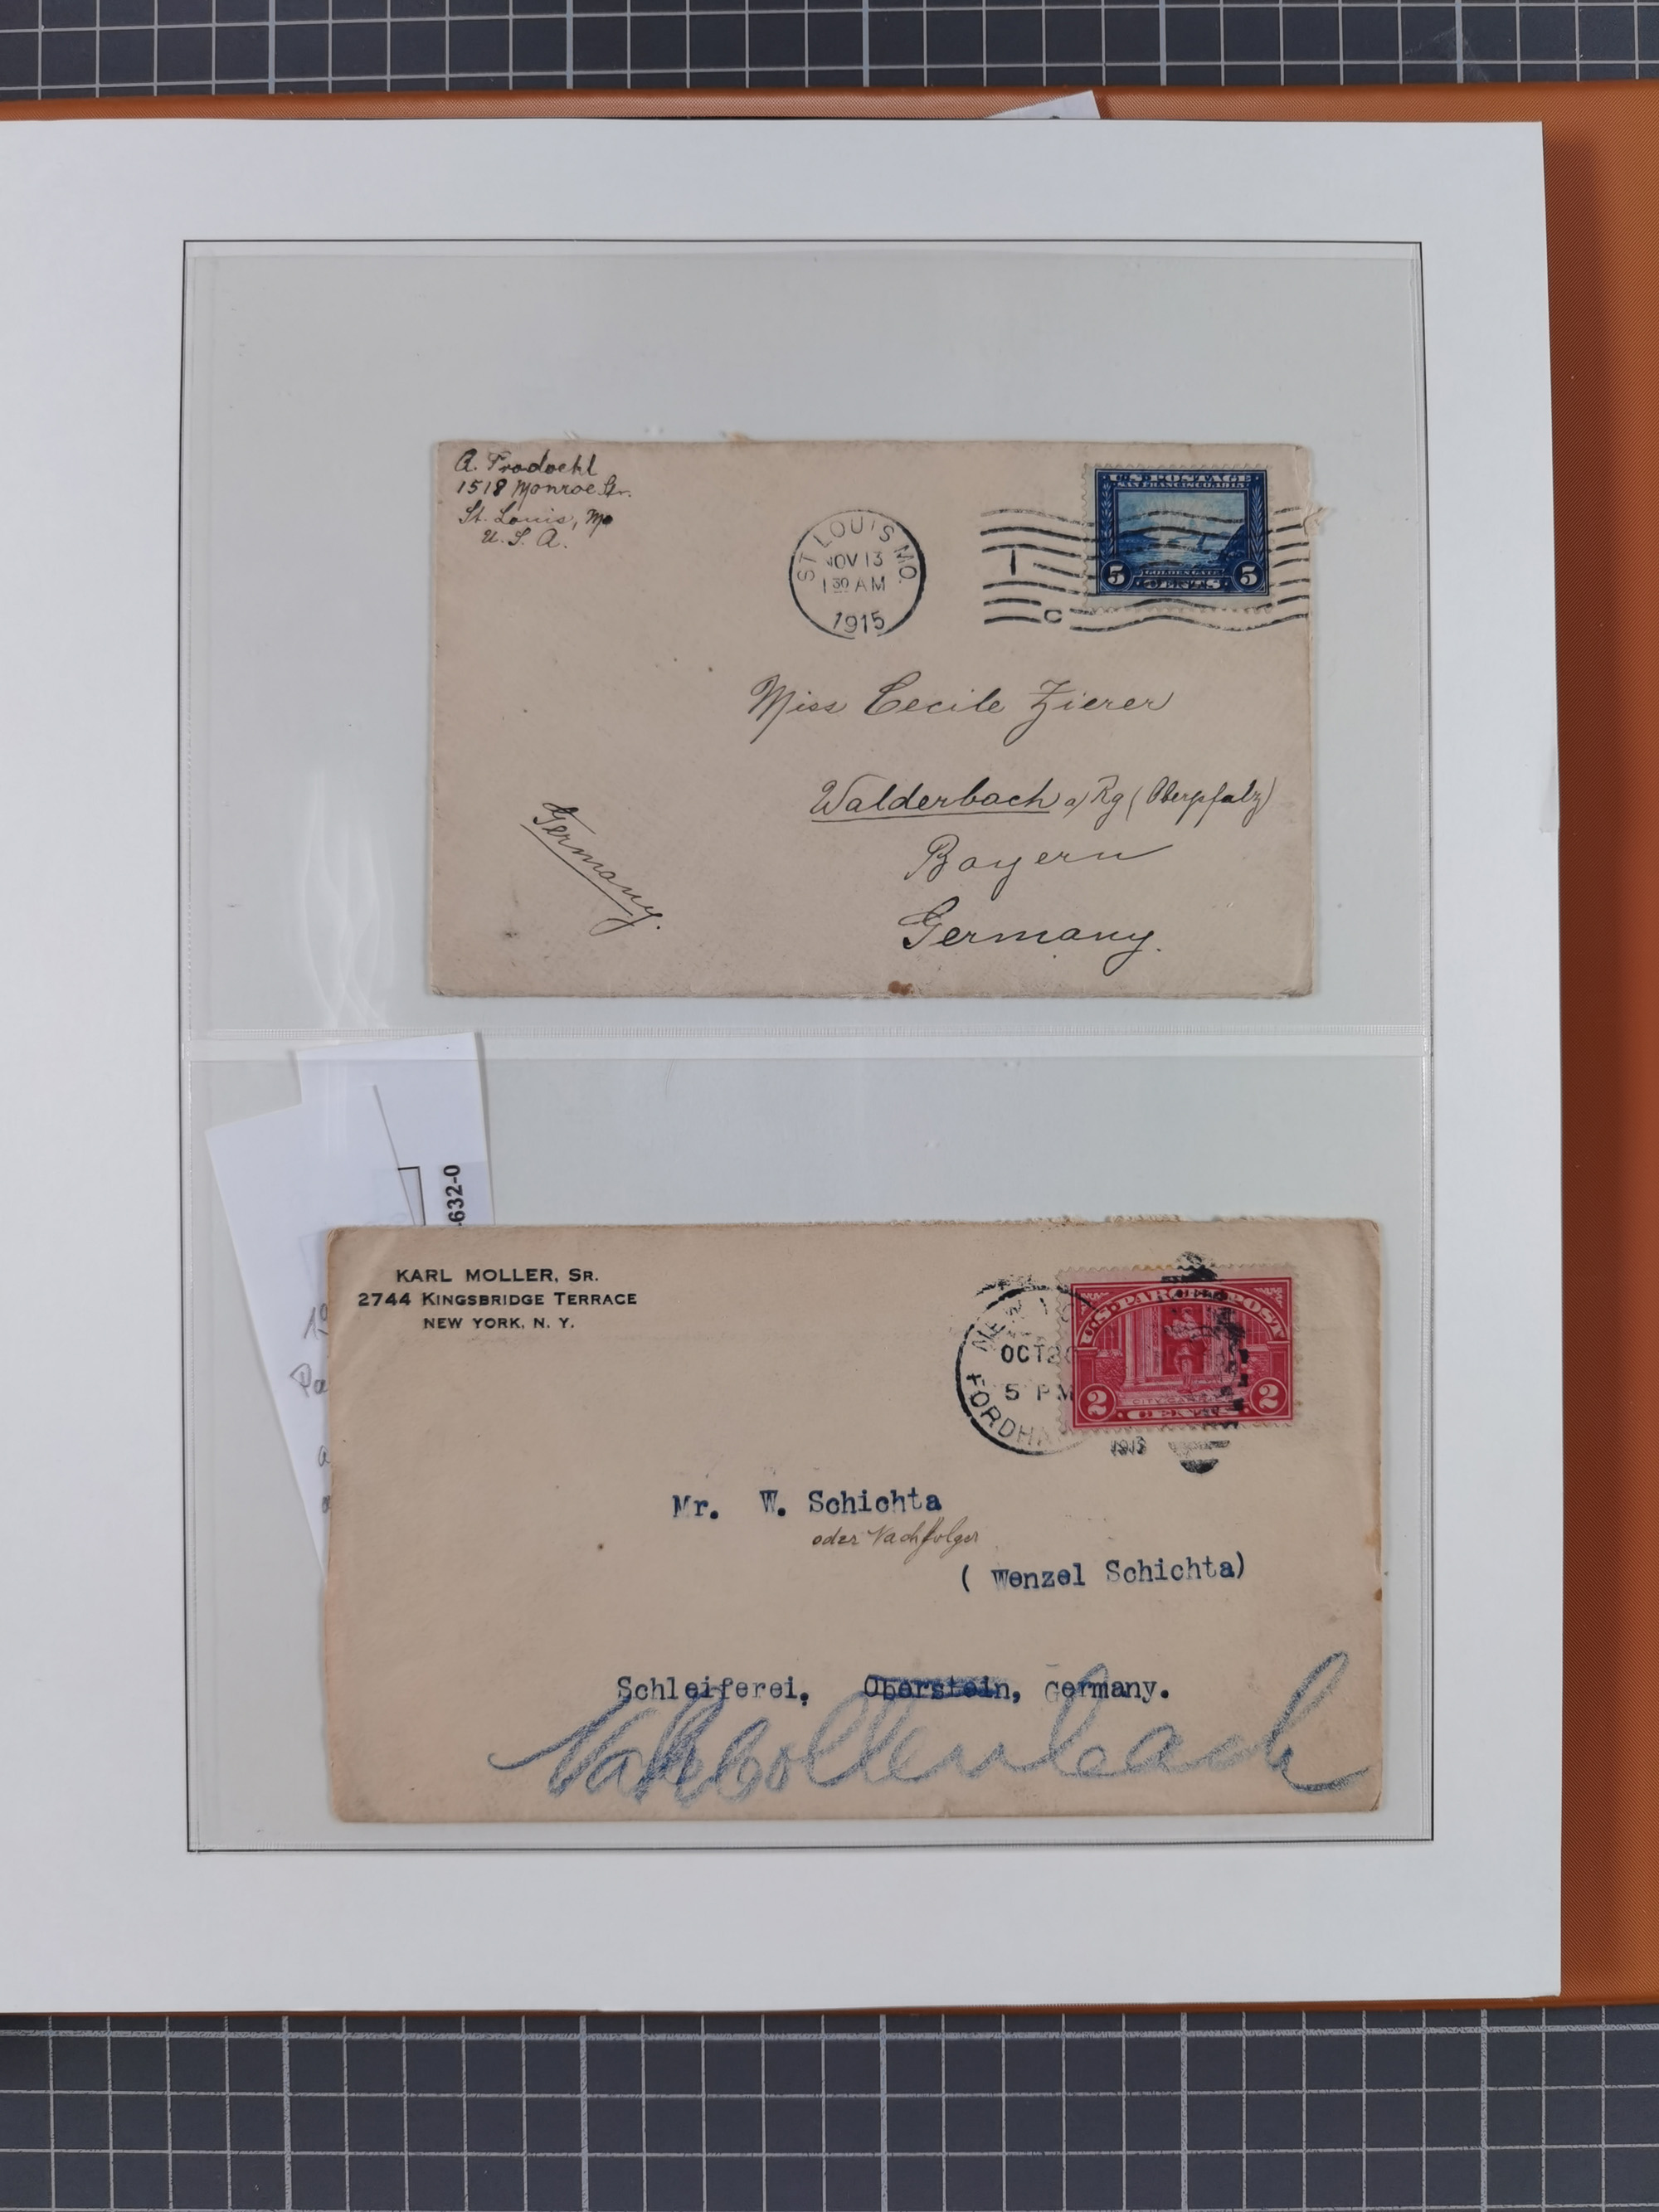 A. Tradoehl
1518 Monroe Str.
St. Louis, Mo
U. S. A.
ST LOUIS MO.
NOV 13
1 30 AM
1915
1
C
U.S. POSTAGE
SAN FRANCISCO 1915
GOLDEN GATE
5 CENTS 5
Miss Cecile Zierer
Walderbach a/Rg (Oberpfalz)
Bayern
Germany.
Germany.
632-0
KARL MOLLER, SR.
2744 KINGSBRIDGE TERRACE
NEW YORK, N. Y.
NEW YO
OCT
5 PM
FORDHA
1913
U.S. PARCEL POST
CITY CARRIER
2 CENTS 2
Mr. W. Schichta
oder Nachfolger
( Wenzel Schichta)
Schleiferei, Oberstein, Germany.
Nahbollenbach